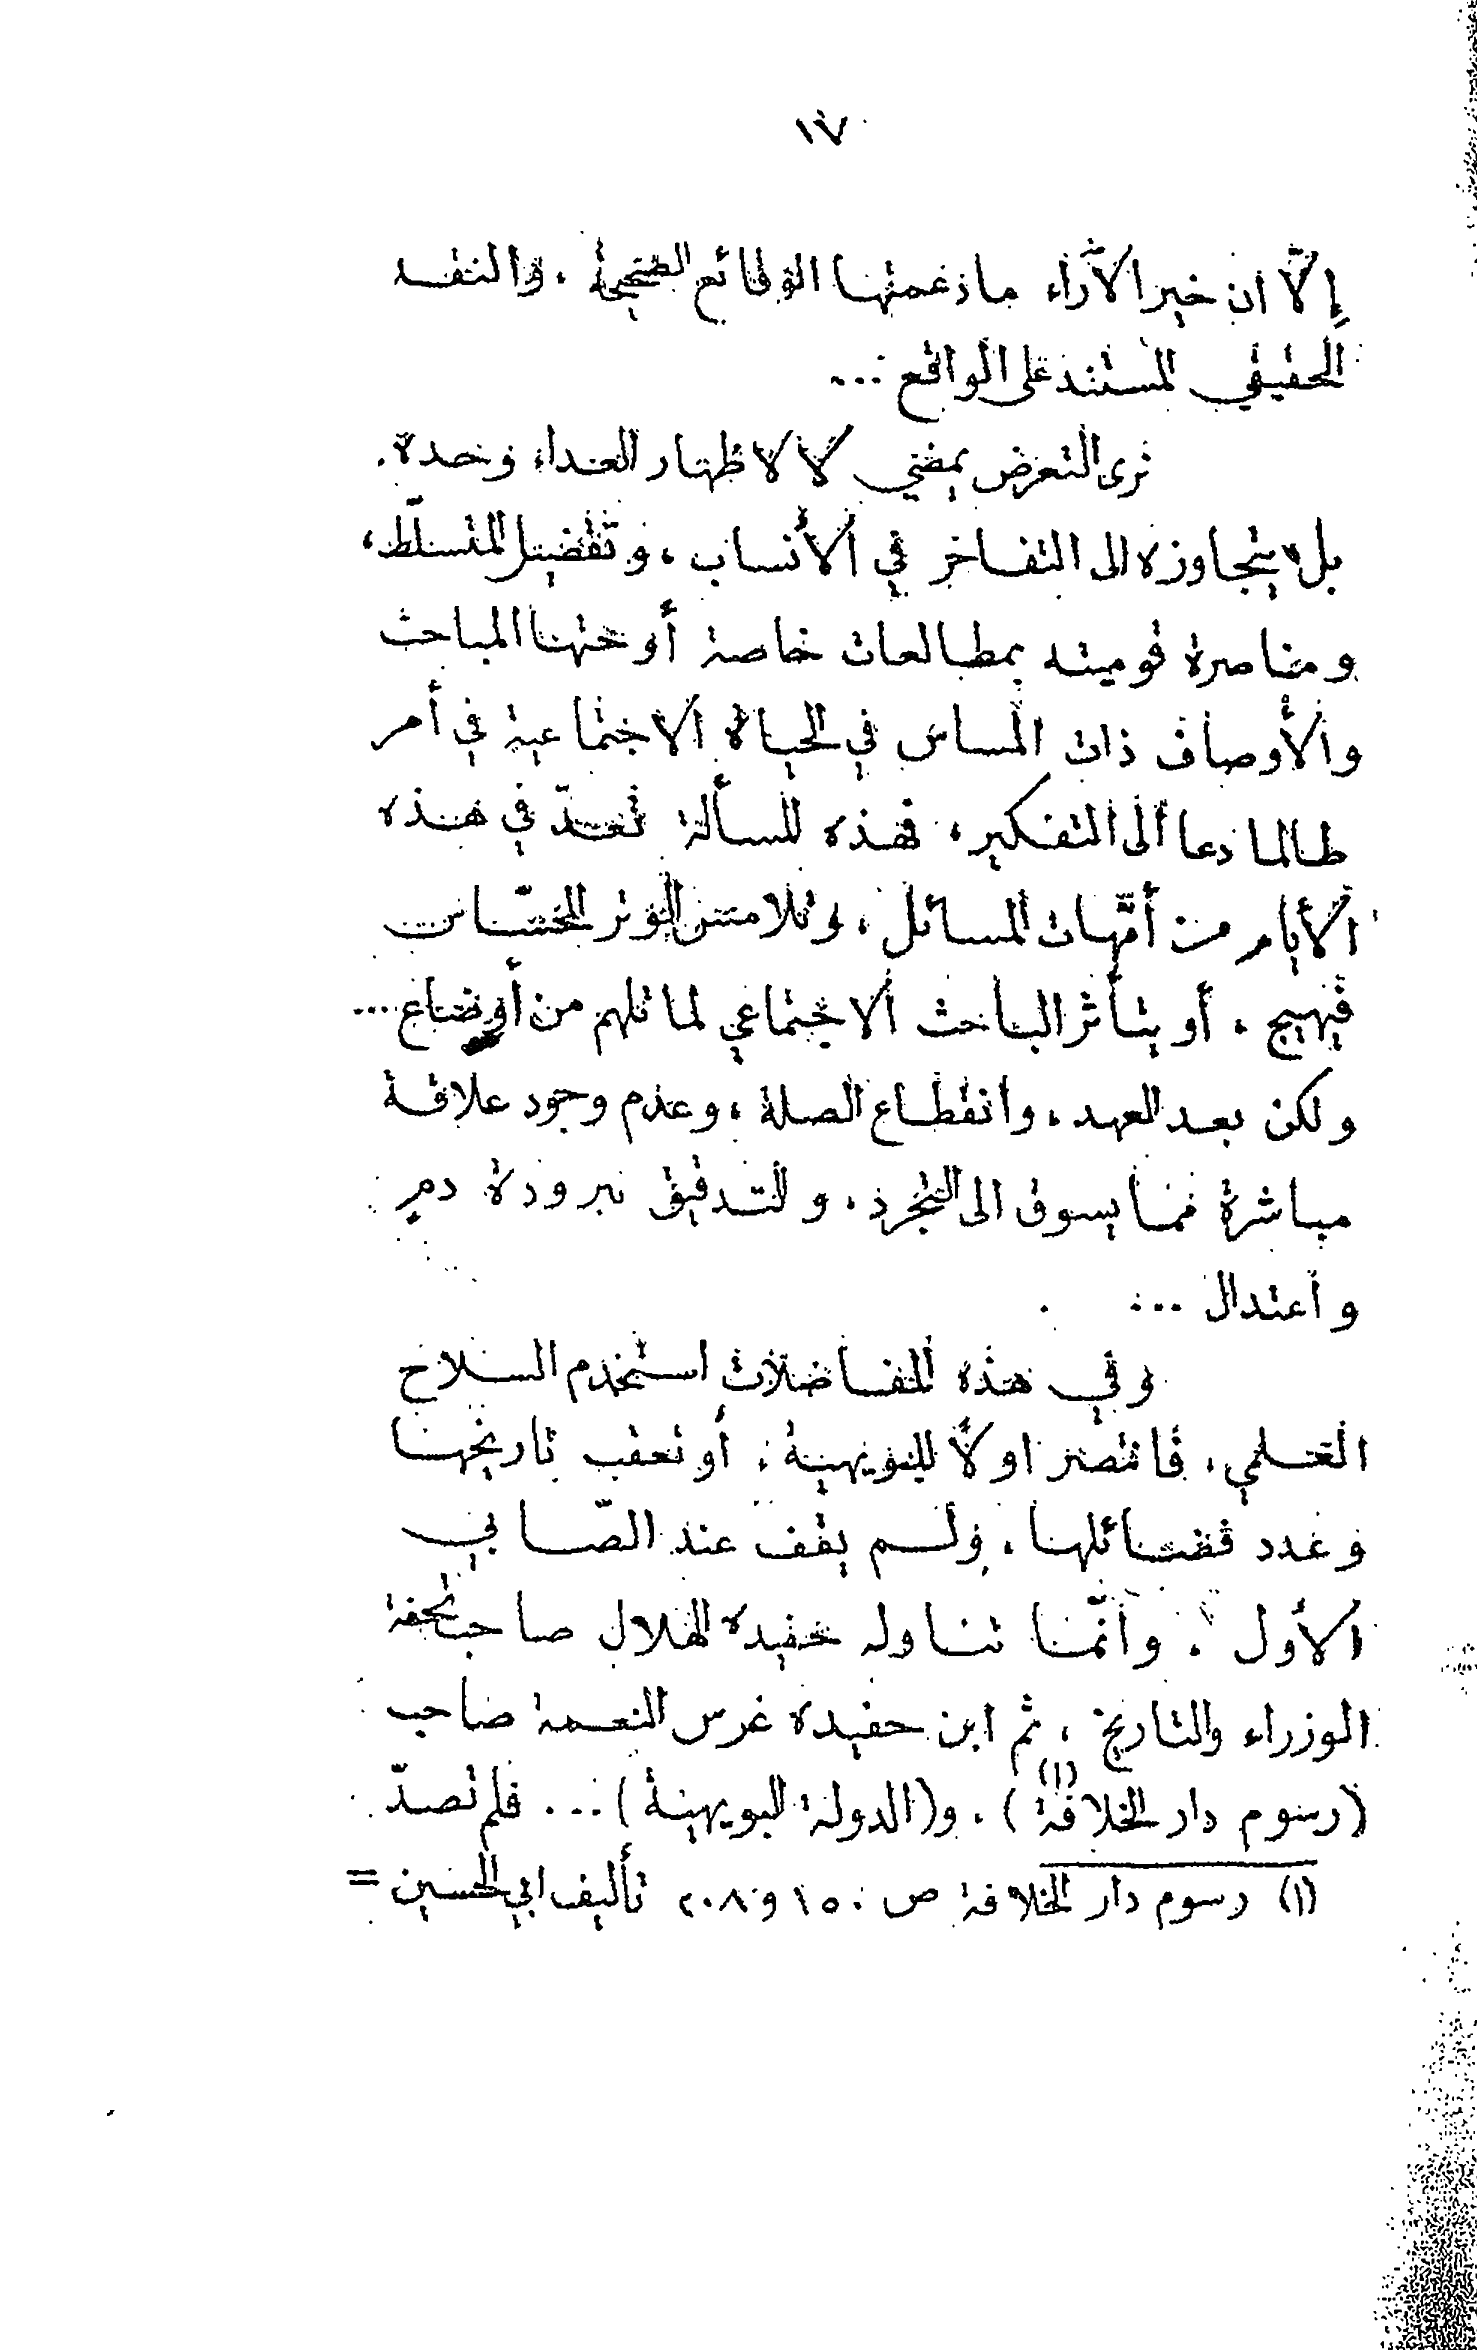 ١٧
إلّا ان خير الآراء ما دعمتها الوقائع الصحيحة ، والنقد
الحقيقي المستند على الواقع ...
نرى التعرض يمضي لا لاظهار العداء وحده .
بل يتجاوزه الى التفاخر في الأنساب ، وتفضيل المتسلّط ،
ومناصرة قوميته بمطالعات خاصة أوحتها المباحث
والأوصاف ذات المساس في الحياة الاجتماعية في أمر
طالما دعا الى التفكير ، فهذه المسألة تعدّ في هذه
الأيام من أمّهات المسائل ، وتلامس الوتر الحسّاس
فيهيج ، أو يتأثر الباحث الاجتماعي لما تلهم من أوضاع ...
ولكن بعد العهد ، وانقطاع الصلة ، وعدم وجود علاقة
مباشرة مما يسوق الى التجرد ، والتدقيق ببرودة دم
واعتدال ...
وفي هذه المفاضلات استخدم السلاح
العلمي ، فانتصر اولاً للبويهية ، أو تعقب تاريخها
وعدد فضائلها ، ولم يقف عند الصّابي
الأول ، وانّما تناوله حفيده الهلال صاحب تحفة
الوزراء والتاريخ ، ثم ابن حفيده غرس النعمة صاحب
(رسوم دار الخلافة (١) ) ، و(الدولة البويهية) ... فلم تصدّ
(١) رسوم دار الخلافة ص ١٥٠ و ٢٠٨ تأليف ابي الحسين =